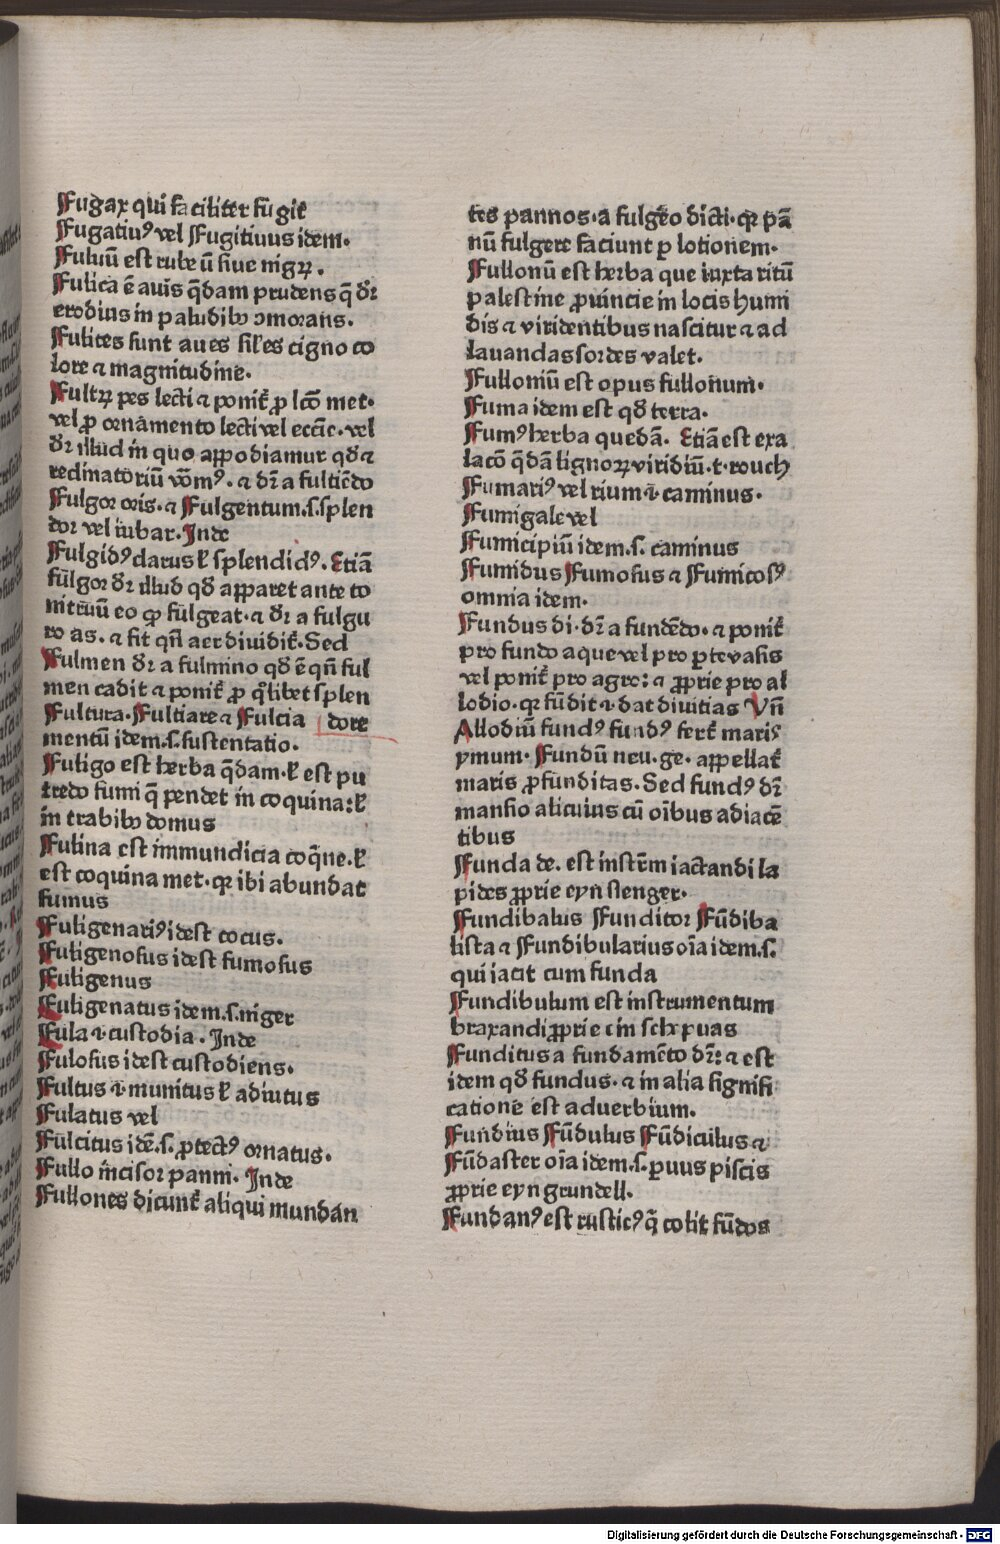 Fugax qui faciliter fugit᷑
Fugatiuꝰ vel Fugitiuus idem.
Fuluū est rubeū siue nigꝝ.
Fulica ē auis q̄dam prudens q̄ dr̄
erodius in paludibꝫ ꝯmorans.
Fulices sunt aues sil'es cigno co
lore ⁊ magnitudine.
Fultꝝ pes lecti ⁊ ponit᷑ ꝓ lc̄o met.
vel ꝓ ornamento lecti vel ecc̄ie. vel
dr̄ illud in quo appodiamur qd̓ ⁊
reclinatoriū vōmꝰ. ⁊ dr̄ a fultiēdo
Fulgor oris. ⁊ Fulgentum.s.splen
dor vel iubar. Inde
Fulgidꝰ clarus l̓ splendidꝰ. Etiā
fulgor dr̄ illud qd̓ apparet ante to
nitruū eo ꝙ fulgeat. ⁊ dr̄ a fulgu
ro as. ⁊ fit qn̄ aer diuidit᷑. Sed
Fulmen dr̄ a fulmino qd̓ ē qn̄ ful
men cadit ⁊ ponit᷑ ꝓ qͥlibet splen
Fultura. Fultiare ⁊ Fulcia dore
mentū idem.s.sustentatio.
Fuligo est herba q̄dam. l̓ est pu
tredo fumi q̄ pendet in coquina: l̓
in trabibꝫ domus
Fulina est immundicia coq̄ne. l̓
est coquina met. qꝛ ibi abundat
fumus
Fuligenariꝰ idest cocus.
Fuligenosus idest fumosus
Fuligenus
Fuligenatus idem.s.niger
Fula .i. custodia. Inde
Fulosus idest custodiens.
Fultus .i. munitus l̓ adiutus
Fulatus vel
Fulcitus idē.s. ꝓtectꝰ ornatus.
Fullo incisor panni. Inde
Fullones dicunt᷑ aliqui mundan
tes pannos. a fulgeo dicti. qꝛ pā
nū fulgere faciunt ꝑ lotionem.
Fullonū est herba que iuxta ritū
palestine ꝓuincie in locis humi
dis ⁊ viridentibus nascitur ⁊ ad
lauandas sordes valet.
Fulloniū est opus fullonum.
Fuma idem est qd̓ terra.
Fumꝰ herba quedā. Etiā est exa
lacō q̄dā lignoꝝ viridiū.t.rouch
Fumariꝰ vel rium .i. caminus.
Fumigale vel
Fumicipiū idem.s. caminus
Fumidus Fumosus ⁊ Fumicosꝰ
omnia idem.
Fundus di. dr̄ a fundēdo. ⁊ ponit᷑
pro fundo aque vel pro ꝑte vasis
vel ponit᷑ pro agro: ⁊ ꝓprie pro al
lodio. qꝛ fūdit .i. dat diuitias Vn̄
Allodiū fundꝰ fundꝰ fert᷑ mariꝰ
ymum. Fundū neu.ge. appellat᷑
maris ꝓfunditas. Sed fundꝰ dr̄
mansio alicuius cū oībus adiacē
tibus
Funda de. est instr̄m iactandi la
pides ꝓprie eyn slenger.
Fundibalus Funditor Fūdiba
lista ⁊ Fundibularius oīa idem.s.
qui iacit cum funda
Fundibulum est instrumentum
braxandi ꝓprie
Funditus a fundamēto dr̄: ⁊ est
idem qd̓ fundus. ⁊ in alia signifi
catione est aduerbium.
Fundius Fūdulus Fūdiculus ⁊
Fūdaster oīa idem.s. ꝑuus piscis
ꝓprie eyn grundell.
Fundanꝰ est rusticꝰ q̄ colit fūdos
Digitalisierung gefördert durch die Deutsche Forschungsgemeinschaft - DFG